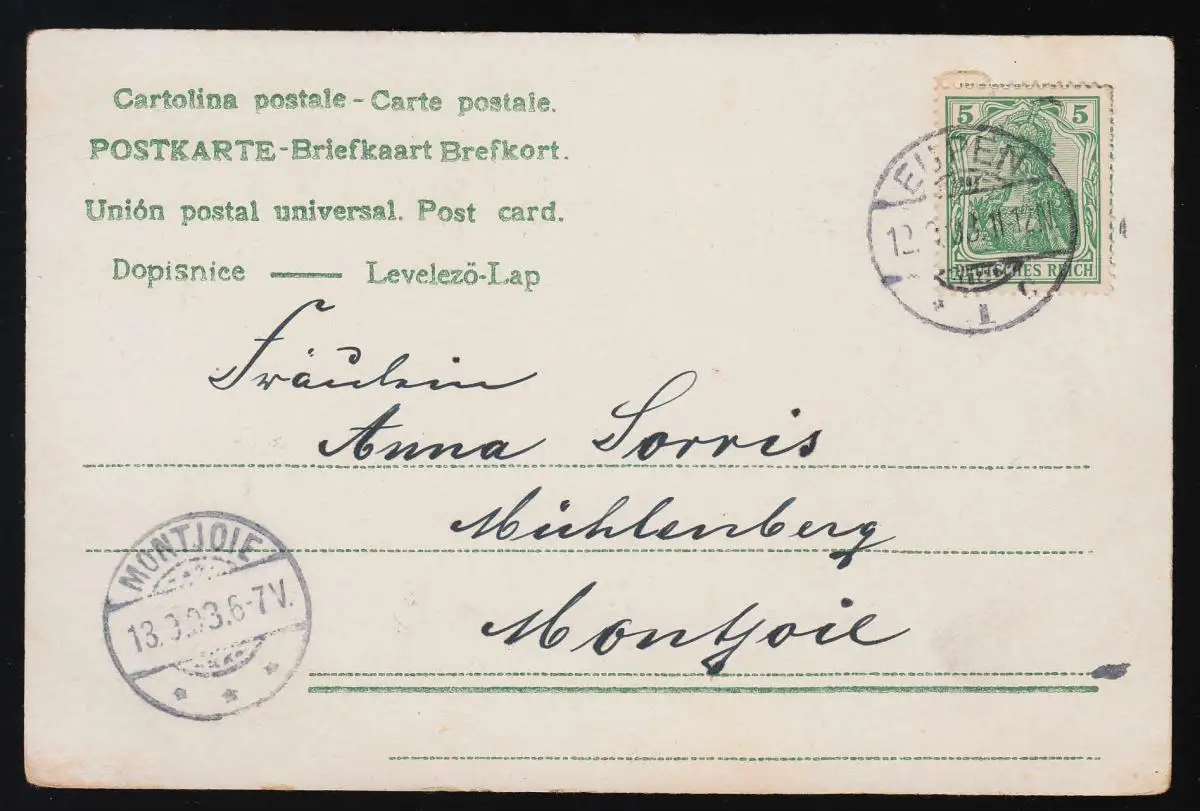 Cartolina postale - Carte postale.
POSTKARTE - Briefkaart Brefkort.
Unión postal universal. Post card.
Dopisnice — Levelezö-Lap
5 5
DEUTSCHES REICH
EUPEN
12.3.03.11-12N
* 1 c
Fräulein
Anna Sorris
Mühlenberg
Montjoie
MONTJOIE
13.3.03.6-7V.
* * *